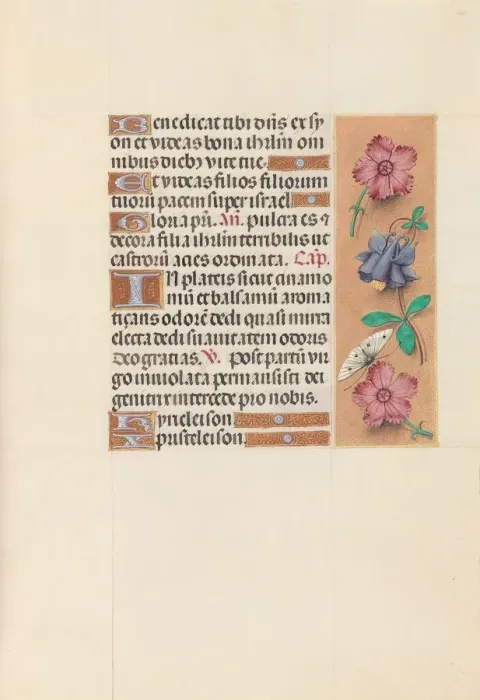 Benedicat tibi dn̄s ex sy
on et videas bona ihrlm̄ om
nibus dieb; vite tue.
Et videas filios filiorum
tuorū pacem super israel.
Gloria pr̄i. An̄. pulcra es ⁊
decora filia ihrlm̄ terribilis ut
castrorū acies ordinata. Cap̄.
IN plateis sicut cinamo
mū et balsamū aroma
tiçans odorē dedi quasi mirra
electa dedi suavitatem odoris
Deo gratias. V̄. post partū vir
go inviolata permansisti dei
genitrix intercede pro nobis.
Kyrieleison
xpristeleison.